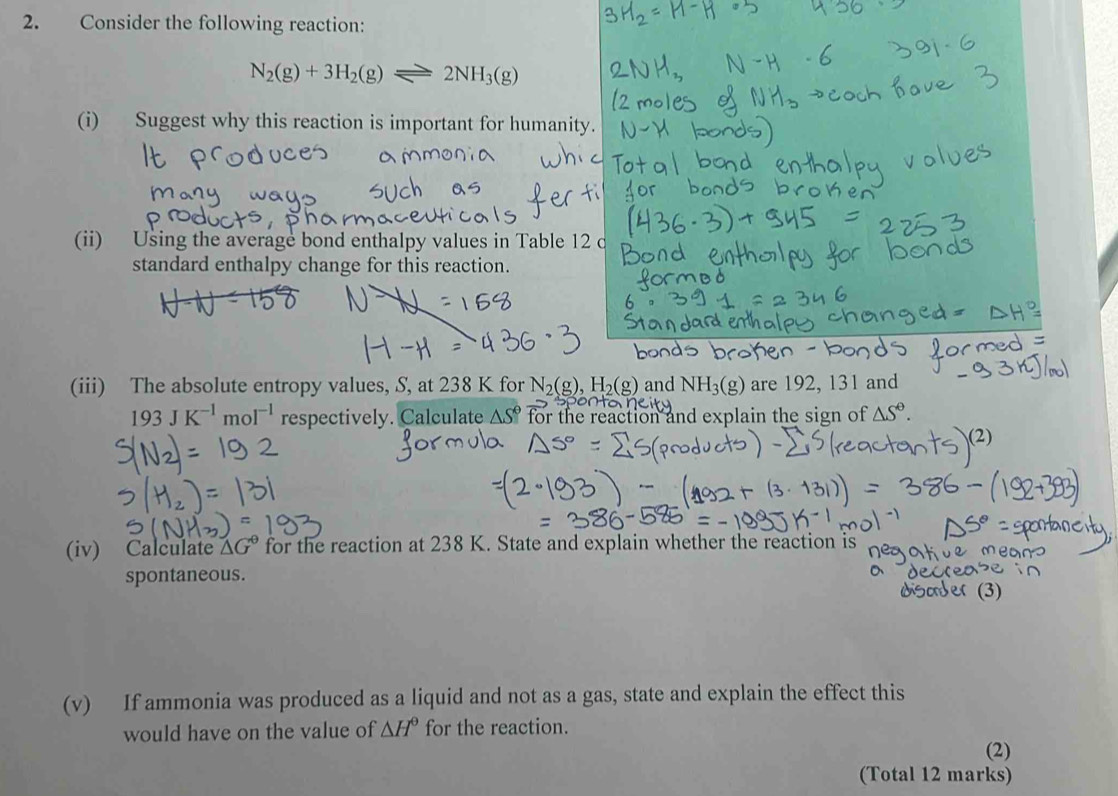 2. Consider the following reaction:
N₂(g) + 3H₂(g) ⇌ 2NH₃(g)
3H₂ = H-H · 3 436 · 3
2NH₃ N-H · 6 391 · 6
(2 moles of NH₃ → each have 3
N-H bonds)
(i) Suggest why this reaction is important for humanity.
It produces ammonia whic
many ways such as fertil
products, pharmaceuticals
Total bond enthalpy values
for bonds broken
(436·3) + 945 = 2253
Bond enthalpy for bonds
formed
6 · 391 = 2346
Standard enthalpy changed = ΔH° =
bonds broken - bonds formed =
-93 kJ/mol
(ii) Using the average bond enthalpy values in Table 12 o
standard enthalpy change for this reaction.
N-N = 158 N-N = 158
H-H = 436 · 3
(iii) The absolute entropy values, S, at 238 K for N₂(g), H₂(g) and NH₃(g) are 192, 131 and
193 J K⁻¹ mol⁻¹ respectively. Calculate ΔS° for the reaction and explain the sign of ΔS°.
→ spontaneity
(2)
formula ΔS° = ΣS(products) - ΣS(reactants)
S(N₂) = 192
S(H₂) = 131
S(NH₃) = 193
= (2·193) - (192 + (3·131)) = 386 - (192+393)
= 386 - 585 = -199 J K⁻¹ mol⁻¹
ΔS° = spontaneity,
negative means
a decrease in
disorder
(iv) Calculate ΔG° for the reaction at 238 K. State and explain whether the reaction is
spontaneous.
(3)
(v) If ammonia was produced as a liquid and not as a gas, state and explain the effect this
would have on the value of ΔH° for the reaction.
(2)
(Total 12 marks)